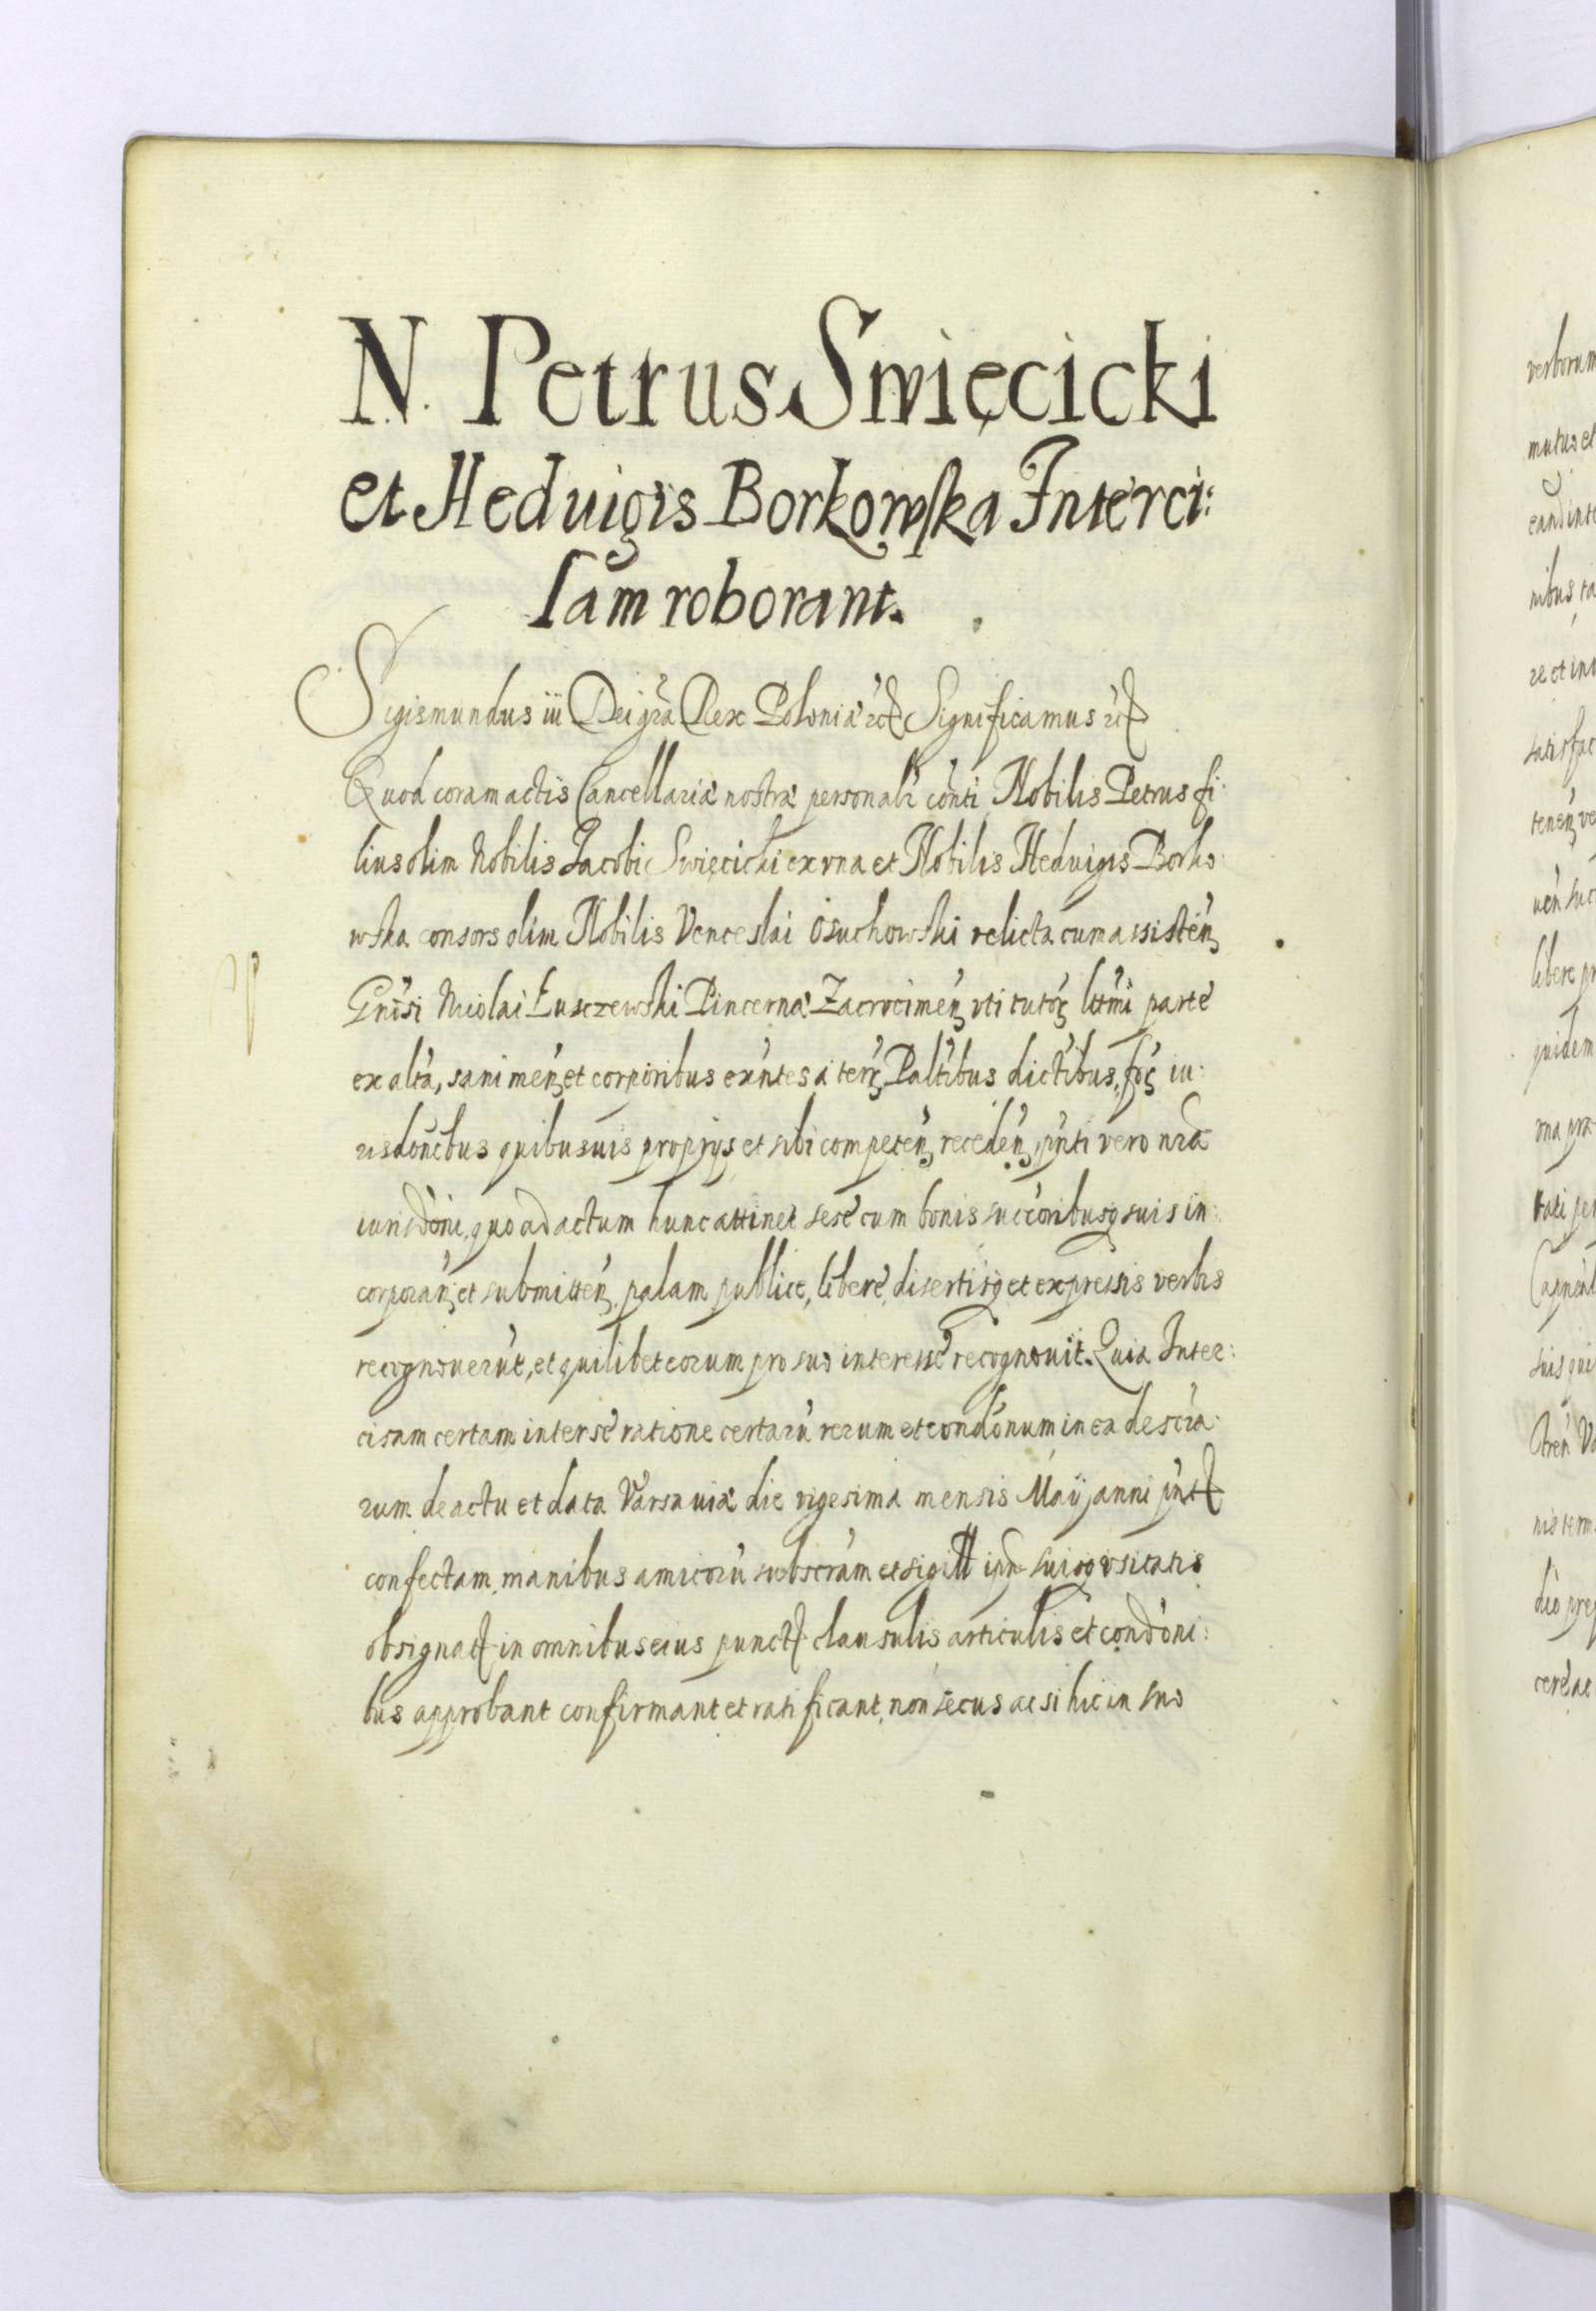 N. Petrus Swięcicki
et Heduigis Borkowska Interci:
sam roborant.
Sigismundus iii Dei gra Rex Poloniæ etc Significamus etc
Quod coram actis Cancellariæ nostræ personalr conti Nobilis Petrus fi:
lius olim Nobilis Jacobi Swięcicki ex vna et Nobilis Heduigis Borko:
wska consors olim Nobilis Venceslai Osuchowski relicta cum assisten
Gnosi Nicolai Łusczewski Pincernæ Zacrocimen vti tutor lttmi parte
ex alta, sani men et corporibus exntes a terr Paltibus dictibus, for iu:
risdonebus quibusuis proprijs et sibi competen receden, pnti vero nra
iurisdoni, quo ad actum hunc attinet sese cum bonis succoribusq suis in:
corporan et submitten, palam publice, libere, disertisq et expressis verbis
recognouerut, et quilibet eorum pro suo interesse recognouit. Quia Inter:
cisam certam inter se ratione certaru rerum et condonum in ea descra:
rum de actu et data Varsauiæ die vigesima mensis Maij anni pnt
confectam, manibus amicoru subscram et sigill suisq vsitatis
obsignat in omnibus eius punct clausulis articulis et condoni:
bus approbant confirmant et ratificant, non secus ac si hic in suo
verborum
mutuo et
nibus
re et in
satisfac
libere
quidem
ona
suis
nis